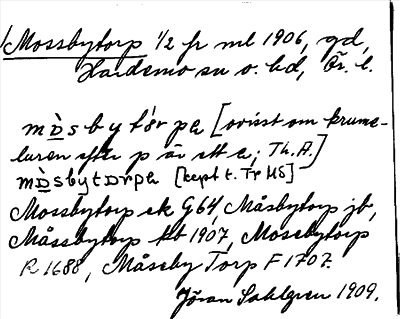 Mossbytorp 1/2 fr ml 1906, gd,
Hardemo sn o. hd, Ör. l.
[ovisst om krume-
luren efter p är ett a; Th.A.]
[kept t. Tr MS]
Mossbytorp ek G64, Måsbytorp jb,
Måssbytorp kb 1907, Mossebytorp
R 1688, Måsseby Torp F 1707.
Jöran Sahlgren 1909.